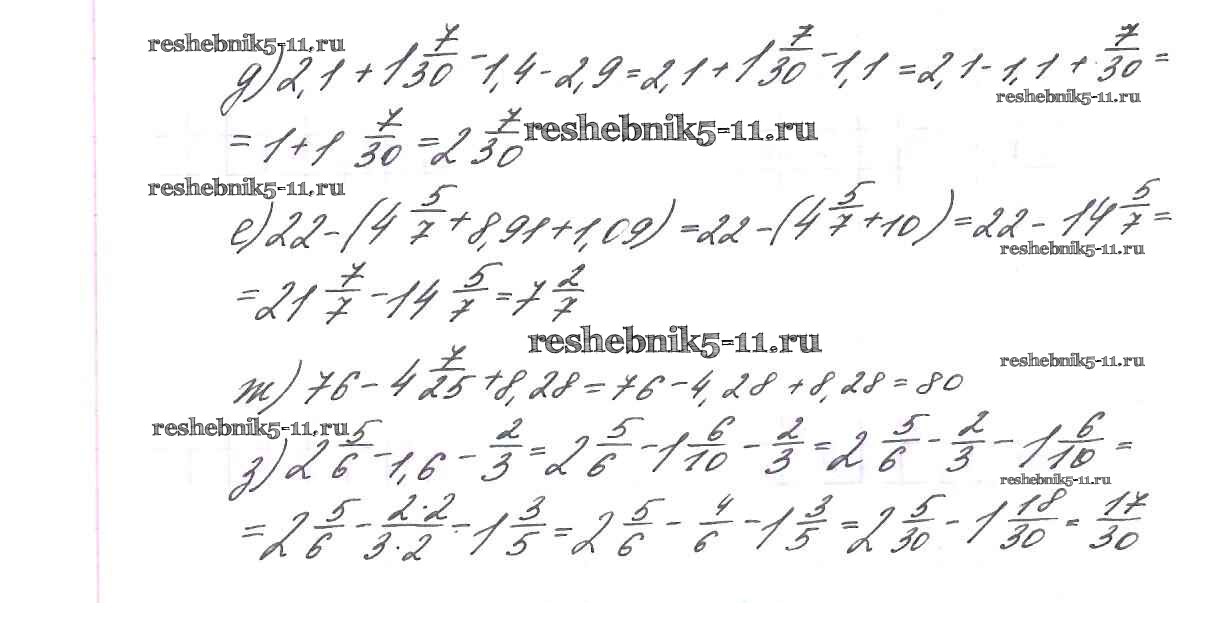 reshebnik5-11.ru
д) 2,1 + 1 7/30 - 1,4 - 2,9 = 2,1 + 1 7/30 - 1,1 = 2,1 - 1,1 + 7/30 =
reshebnik5-11.ru
= 1 + 1 7/30 = 2 7/30 reshebnik5-11.ru
reshebnik5-11.ru
е) 22 - (4 5/7 + 8,91 + 1,09) = 22 - (4 5/7 + 10) = 22 - 14 5/7 =
reshebnik5-11.ru
= 21 7/7 - 14 5/7 = 7 2/7
reshebnik5-11.ru
reshebnik5-11.ru
ж) 76 - 4 7/25 + 8,28 = 76 - 4,28 + 8,28 = 80
reshebnik5-11.ru
з) 2 5/6 - 1,6 - 2/3 = 2 5/6 - 1 6/10 - 2/3 = 2 5/6 - 2/3 - 1 6/10 =
reshebnik5-11.ru
= 2 5/6 - 2·2/3·2 - 1 3/5 = 2 5/6 - 4/6 - 1 3/5 = 2 5/30 - 1 18/30 = 17/30